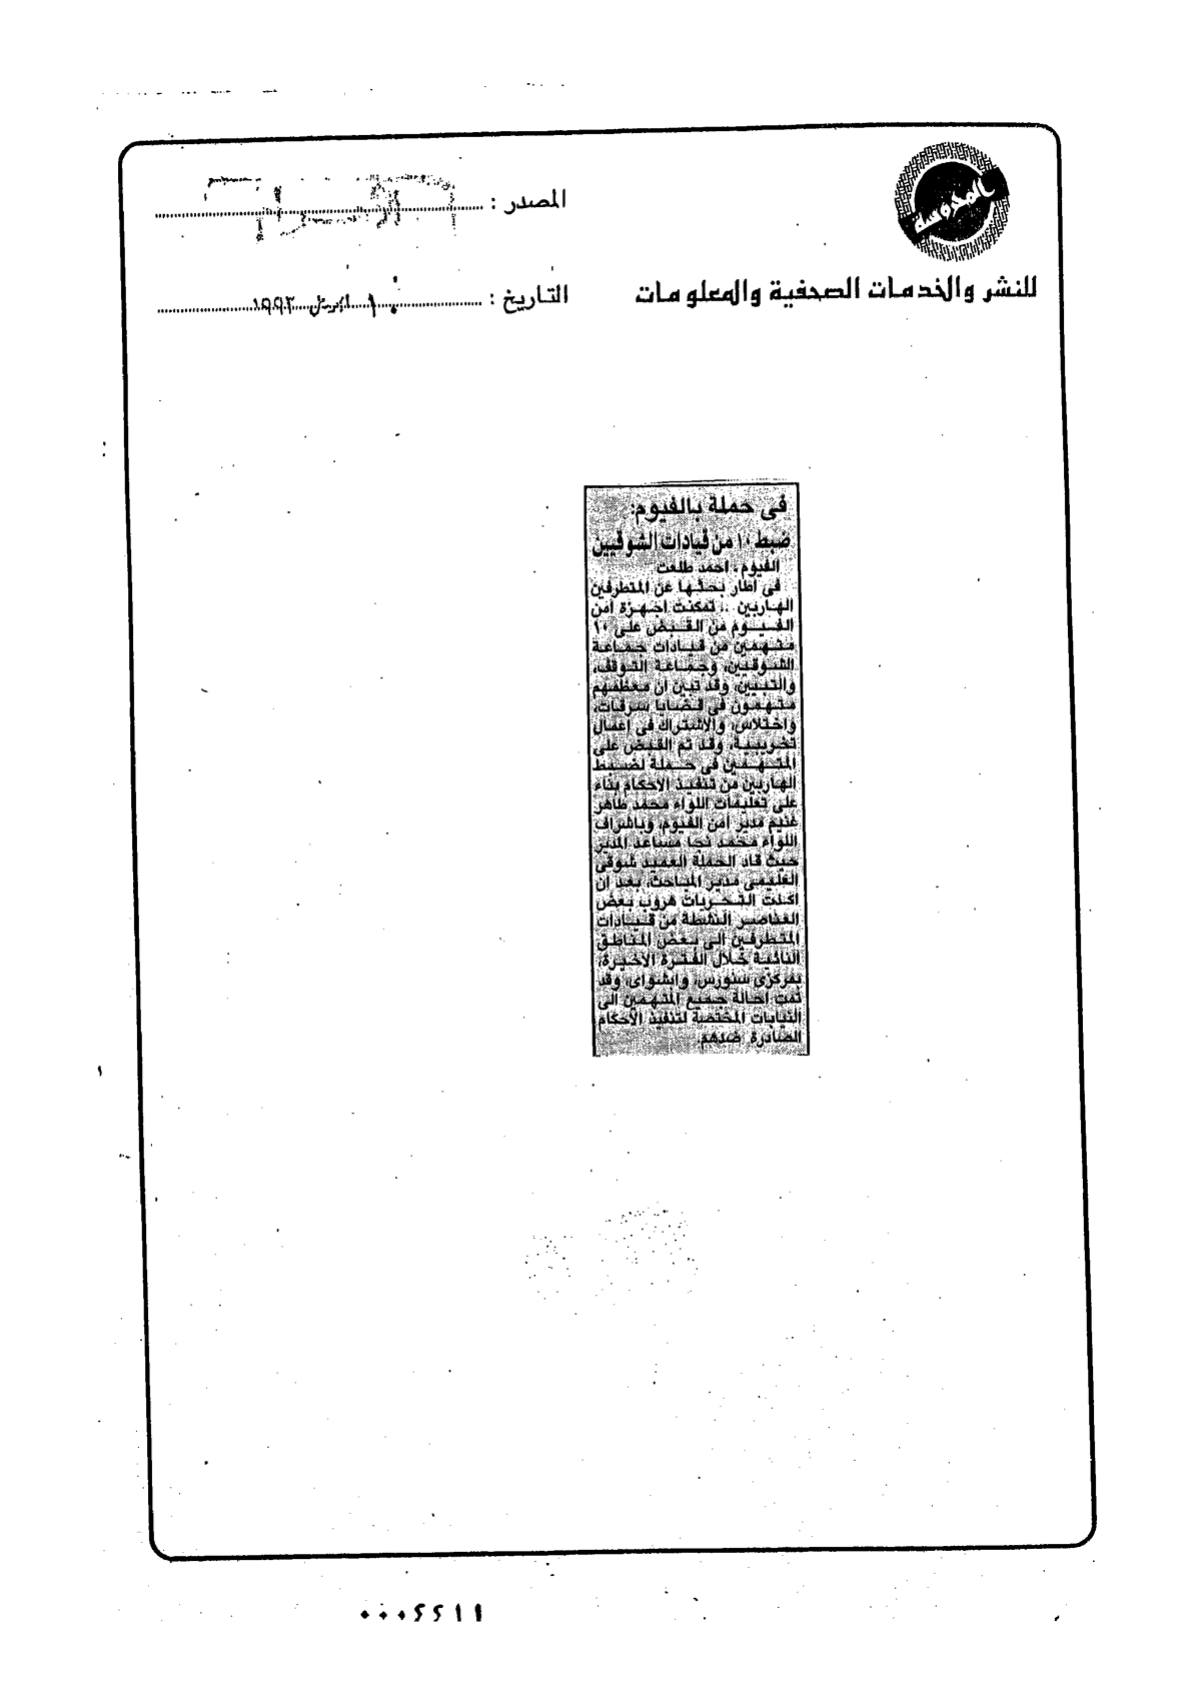 المصدر :
للنشر والخدمات الصحفية والمعلومات
التاريخ : ١٠ ابريل ١٩٩٣
فى حملة بالفيوم:
ضبط ١٠ من قيادات الشوقيين
الفيوم ـ احمد طلعت
فى اطار بحثها عن المتطرفين
الهاربين .. تمكنت اجهزة امن
الفيوم من القبض على ١٠
متهمين من قيادات جماعة
الشوقيين، وجماعة التوقف،
والتبيين، وقد تبين ان معظمهم
متهمون فى قضايا سرقات،
واختلاس، والاشتراك فى اعمال
تخريبية، وقد تم القبض على
المتهمين فى حملة لضبط
الهاربين من تنفيذ الاحكام بناء
على تعليمات اللواء محمد طاهر
غنيم مدير امن الفيوم، وباشراف
اللواء محمد نجا مساعد المدير
حيث قاد الحملة العميد شوقى
مدير المباحث، بعد ان
اكدت التحريات هروب بعض
العناصر النشطة من قيادات
المتطرفين الى بعض المناطق
النائية خلال الفترة الاخيرة،
بمركزى سنورس، وابشواى، وقد
تمت احالة جميع المتهمين الى
النيابات المختصة لتنفيذ الاحكام
الصادرة ضدهم.